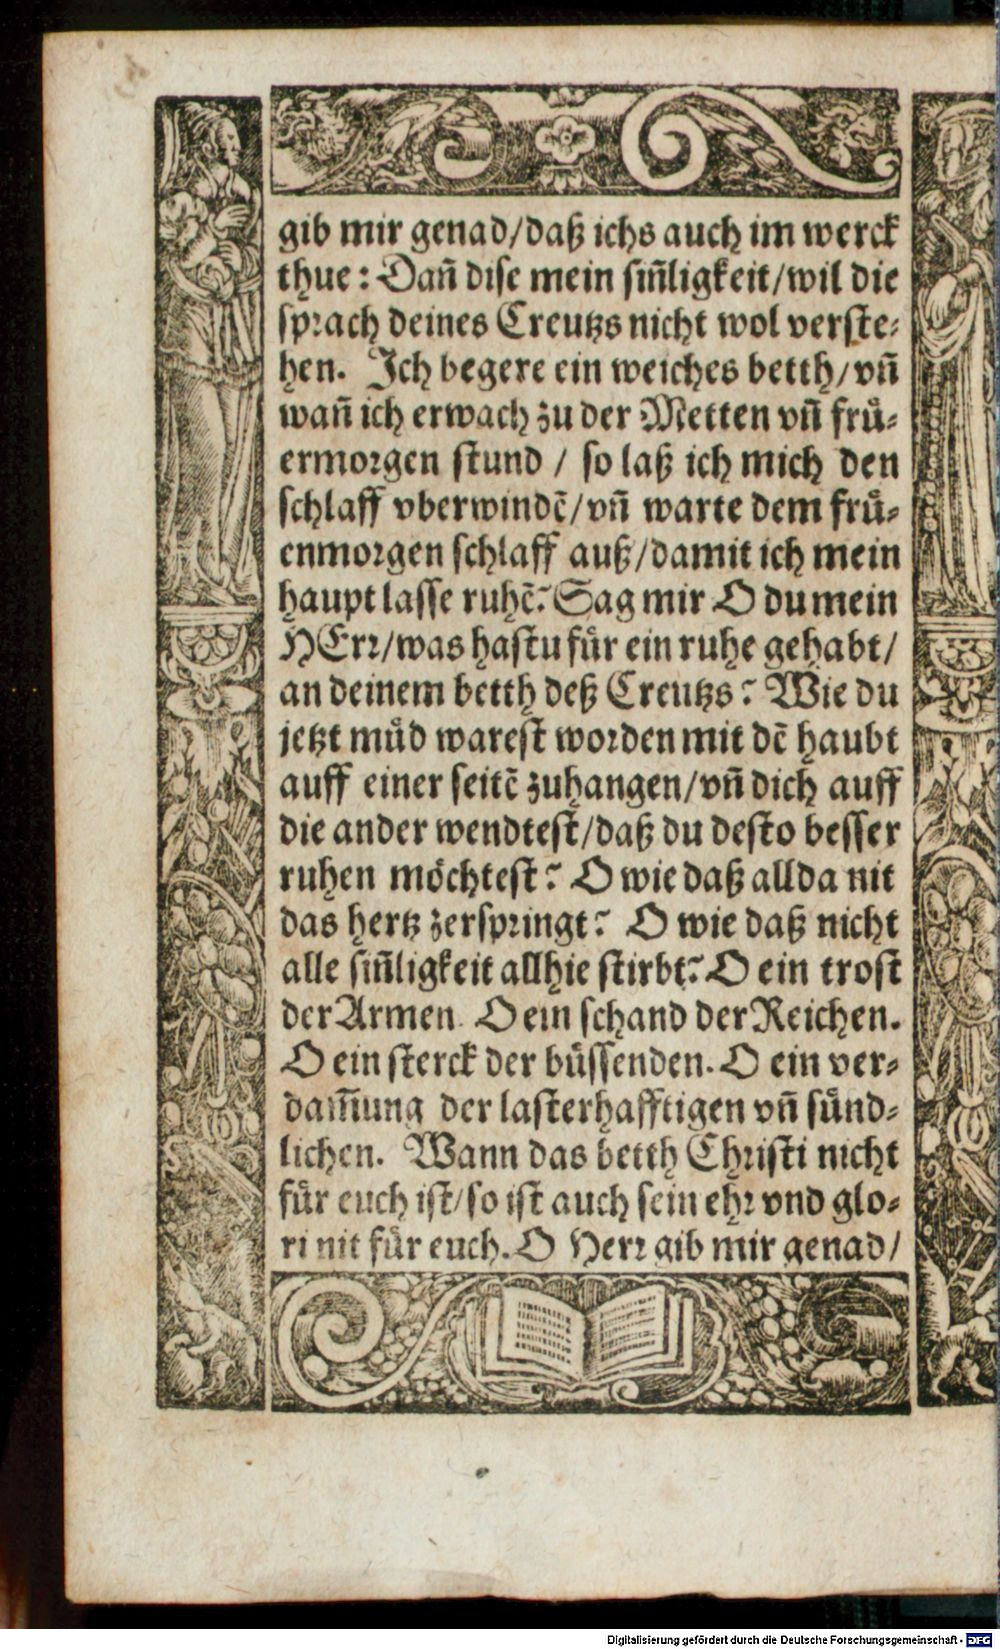 gib mir genad/daß ichs auch im werck
thue: Dañ dise mein siñligkeit/wil die
sprach deines Creutzs nicht wol verste-
hen. Ich begere ein weiches betth/vñ
wañ ich erwach zu der Metten vñ frů-
ermorgen stund / so laß ich mich den
schlaff vberwindẽ/vñ warte dem frů-
enmorgen schlaff auß/damit ich mein
haupt lasse ruhẽ? Sag mir O du mein
HErr/was hastu fůr ein ruhe gehabt/
an deinem betth deß Creutzs? Wie du
jetzt můd warest worden mit dẽ haubt
auff einer seitẽ zuhangen/vñ dich auff
die ander wendtest/daß du desto besser
ruhen möchtest? O wie daß allda nit
das hertz zerspringt? O wie daß nicht
alle siñligkeit allhie stirbt? O ein trost
der Armen. O ein schand der Reichen.
O ein sterck der bůssenden. O ein ver-
dam̃ung der lasterhafftigen vñ sůnd-
lichen. Wann das betth Christi nicht
fůr euch ist/so ist auch sein ehr vnd glo-
ri nit fůr euch. O Herr gib mir genad/
Digitalisierung gefördert durch die Deutsche Forschungsgemeinschaft - DFG